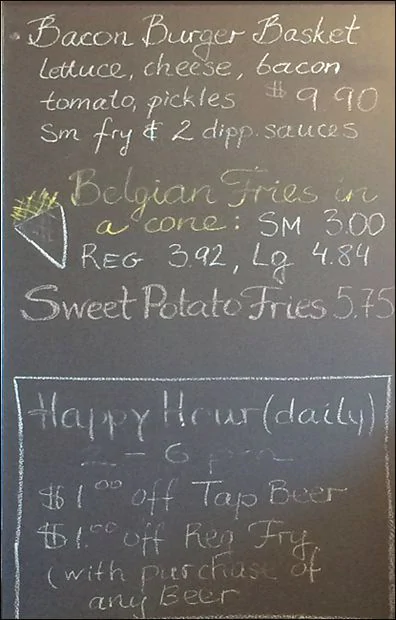 Bacon Burger Basket
lettuce, cheese, bacon
tomato, pickles $ 9.90
Sm fry & 2 dipp. sauces
Belgian Fries in
a cone: SM 3.00
REG 3.92, Lg 4.84
Sweet Potato Fries 5.75
Happy Hour (daily)
2 - 6 pm
$1.00 off Tap Beer
$1.00 off Reg Fry
(with purchase of
any Beer